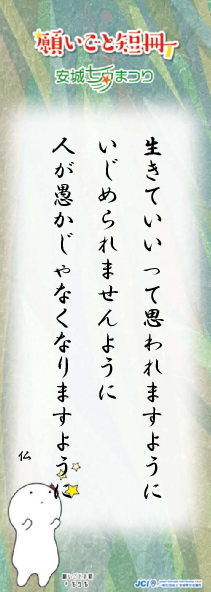 願いごと短冊
安城七夕まつり
生きていいって思われますように
いじめられませんように
人が愚かじゃなくなりますように
仏
JCI